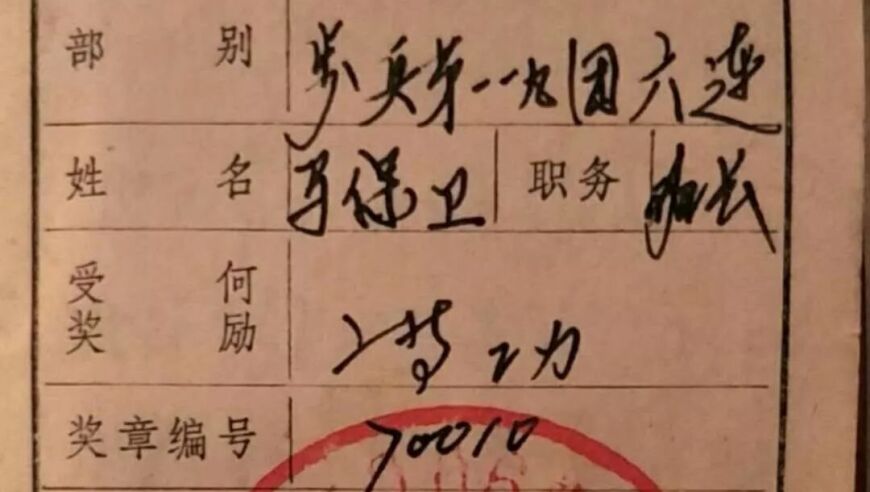 部别 步兵第一一九团六连
姓名 马保卫 职务 班长
受何
奖励 二等功
奖章编号 70010